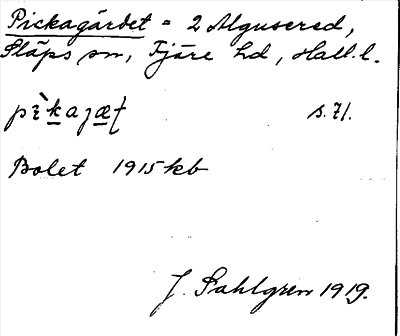 Pickagärdet = 2 Alguserød,
Släps sn, Fjäre hd, Hall. l.
s. 71.
Bolet 1915 kb
J. Sahlgren 1919.